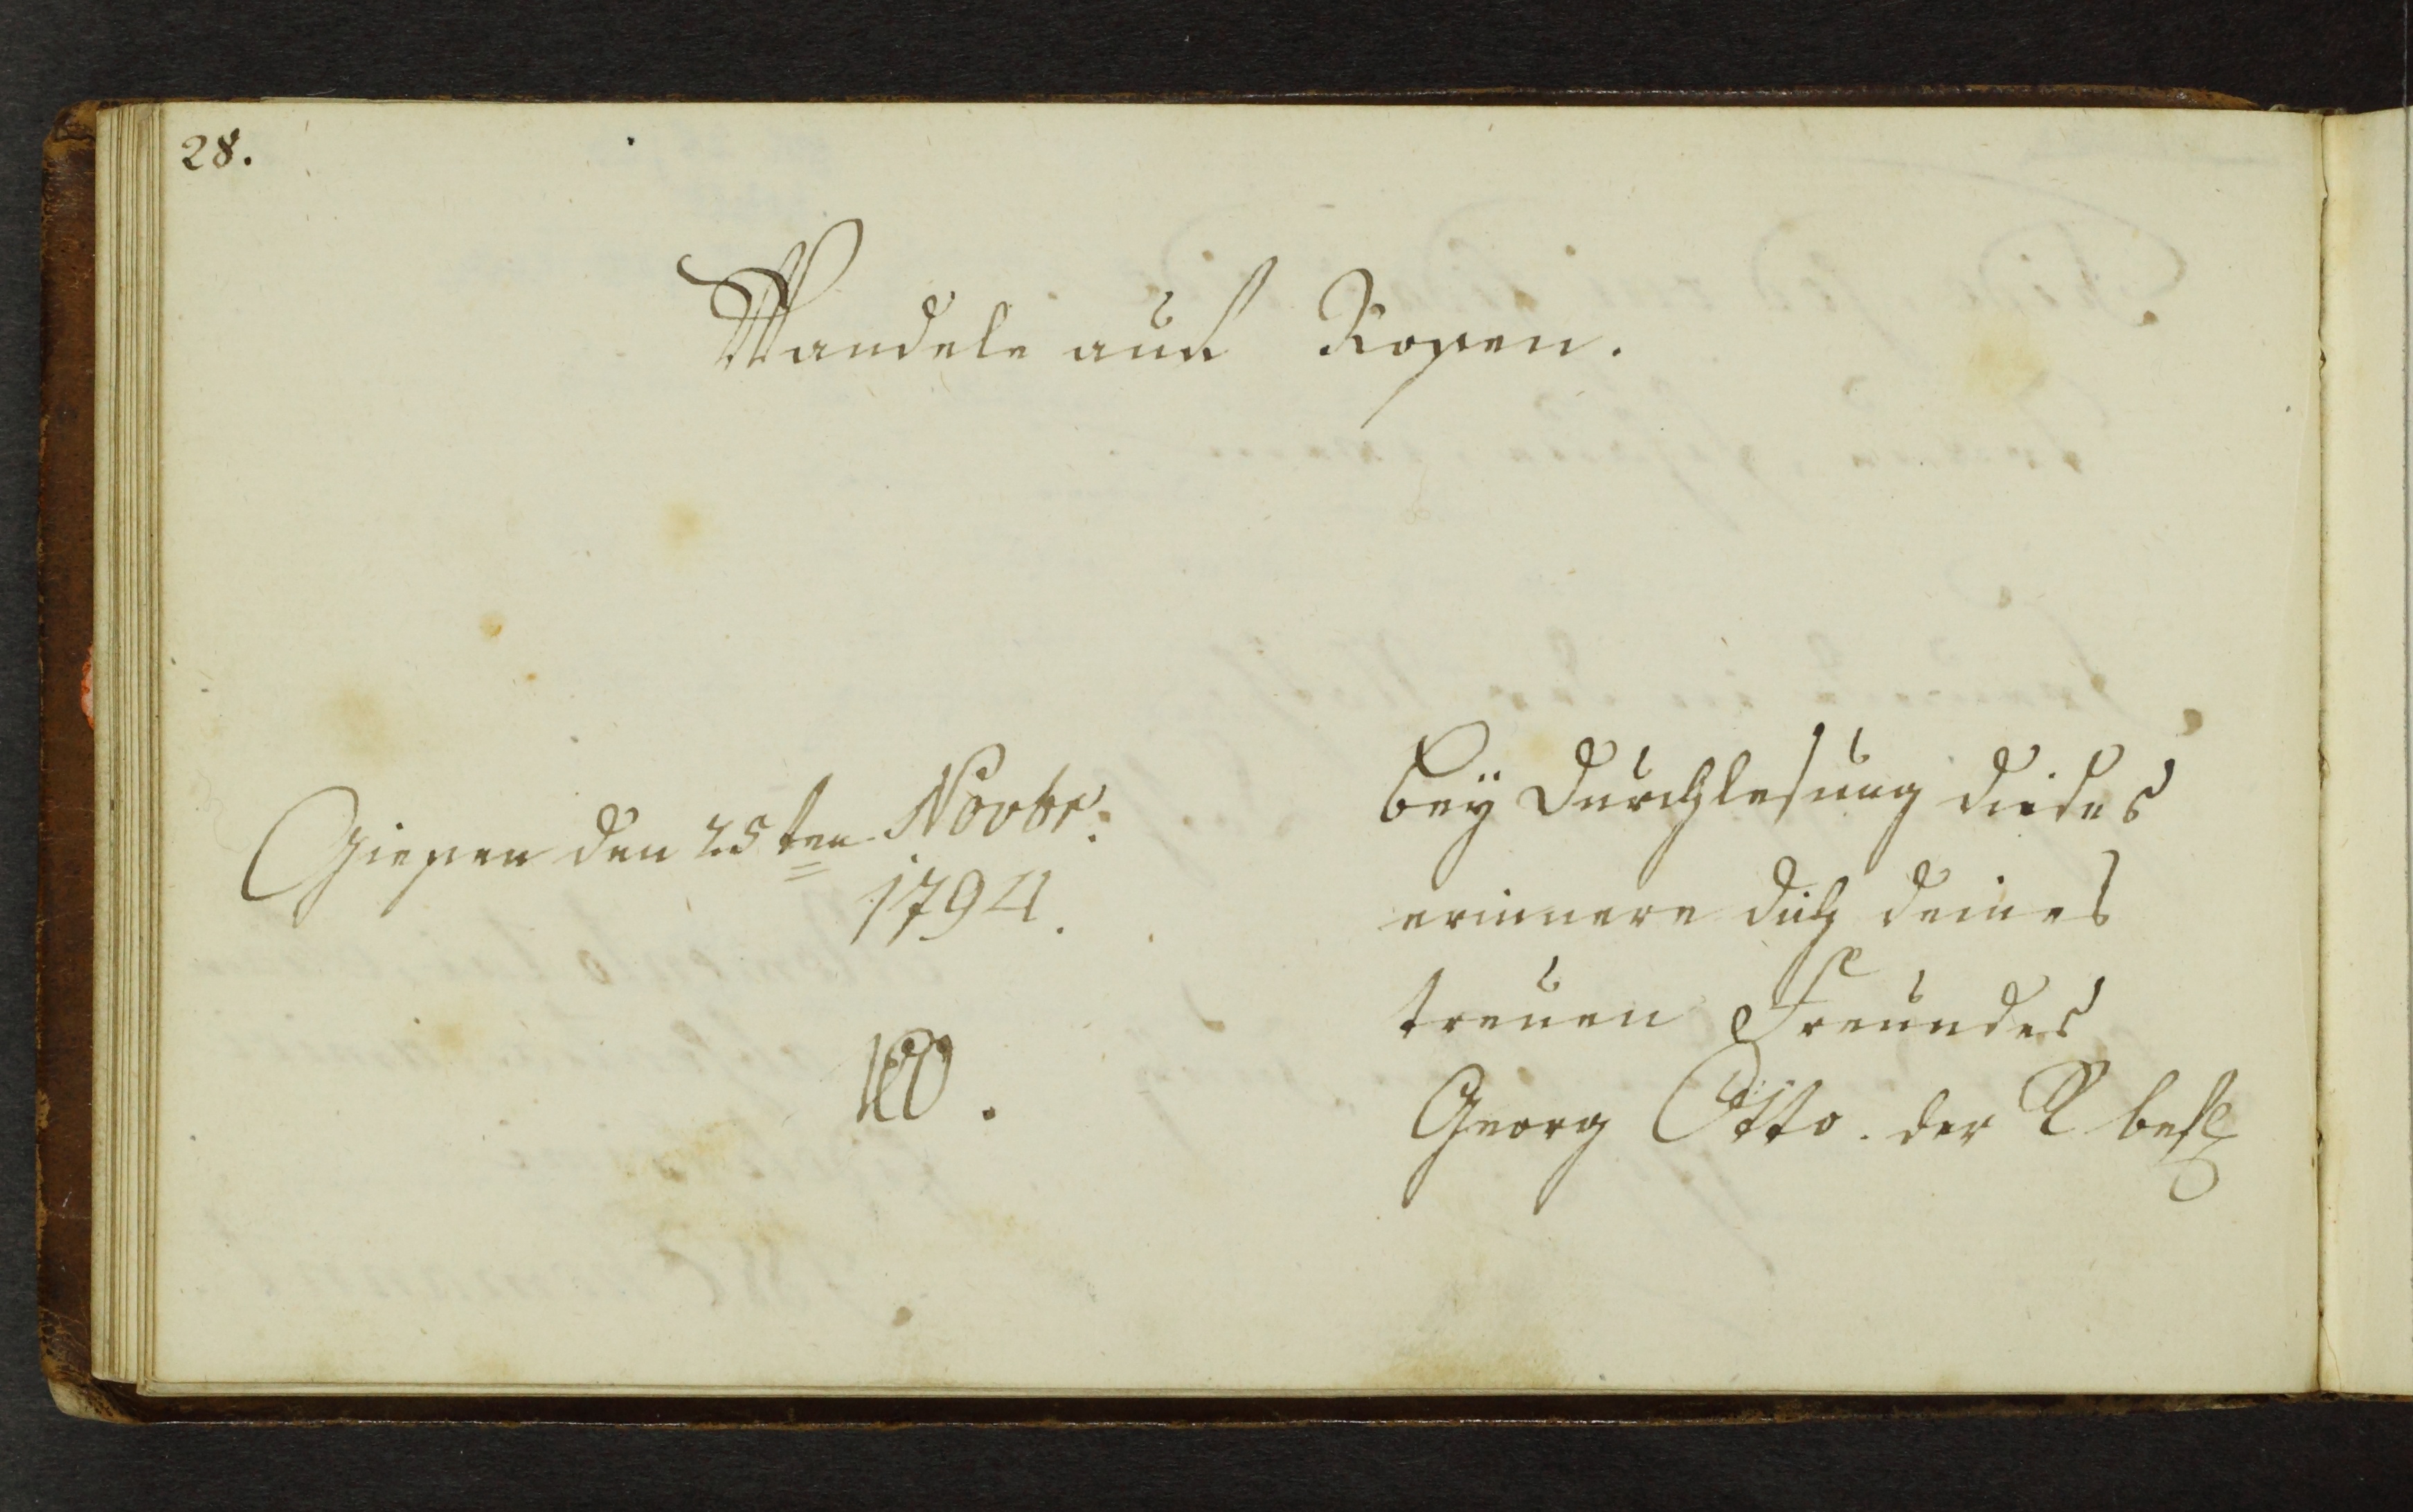 28.
Wandele auf Rosen.
Giesen den 25ten Novbr:
1794.
bey Durchlesung dieses
erinnere dich deines
treuen Freundes
Georg Otto. der R befl